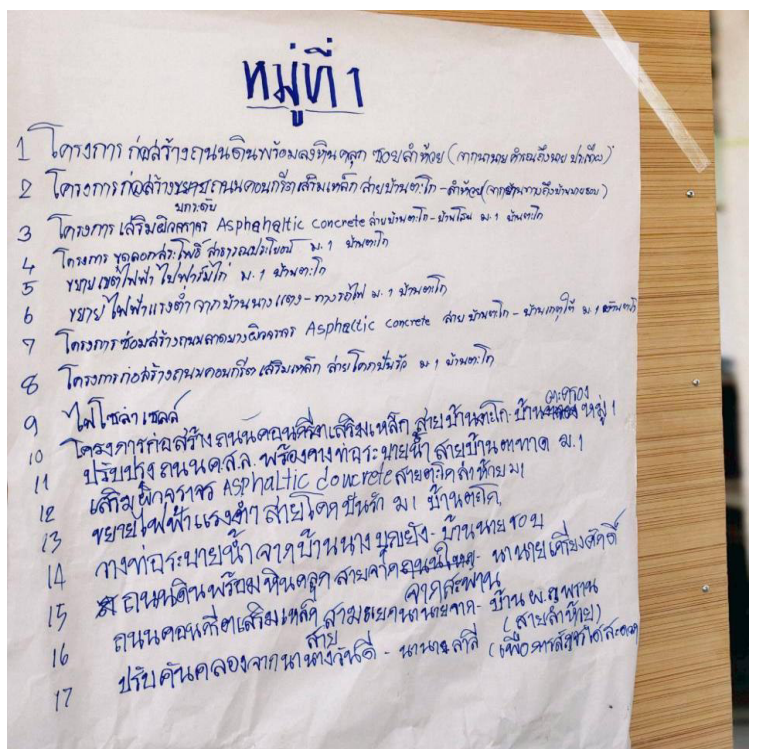 หมู่ที่ 1
1 โครงการ ก่อสร้างถนนดินพร้อมลงหินคลุก ซอยลำห้วย (จากนานาย คำรณถึงนาย
2 โครงการก่อสร้างขยายถนนคอนกรีตเสริมเหล็ก สายบ้านตะโก-ลำห้วย (จาก
ยกระดับ
3 โครงการ เสริมผิวจราจร Asphahaltic concrete สายบ้านตะโก-บ้านโสน ม.1 บ้านตะโก
4 โครงการ ขุดลอกสระโพธิ์ สาธารณประโยชน์ ม.1 บ้านตะโก
5 ขยายเขตไฟฟ้า ไปฟาร์มไก่ ม.1 บ้านตะโก
6 ขยายไฟฟ้าแรงต่ำ จากบ้านนางแตง-ทางรถไฟ ม.1 บ้านตะโก
7 โครงการซ่อมสร้างถนนลาดยางผิวจราจร Asphaltic concrete สาย บ้านตะโก - ม.1 บ้านตะโก
8 โครงการก่อสร้างถนนคอนกรีตเสริมเหล็ก สายโคกปันรัว ม.1 บ้านตะโก
9 ไฟโซล่าเซลล์
10 โครงการก่อสร้างถนนคอนกรีตเสริมเหล็ก สายบ้านตะโก-บ้านตะครอง หมู่ 1
11 ปรับปรุงถนน ค.ส.ล. พร้อมวางท่อระบายน้ำ สายบ้านตาทาด ม.1
12 เสริมผิวจราจร ASphaltic concrete สายตะโกลำห้วย ม1
13 ขยายไฟฟ้าแรงต่ำ สายโคกปันรัว ม1 บ้านตะโก
14 วางท่อระบายน้ำ จากบ้านนางบุญยัง-บ้านนายชอบ
15 ถนนดินพร้อมหินคลุก สายจาก - นานายเกรียงศักดิ์
จากสะพาน
16 ถนนคอนกรีตเสริมเหล็ก สามแยกนานายจาก-บ้าน ผ.ญ.พราน
(สายลำห้วย)
สาย
17 ปรับคันคลองจากนานางวันดี - นานายสาลี่ (เพื่อการสัญจรได้สะดวก